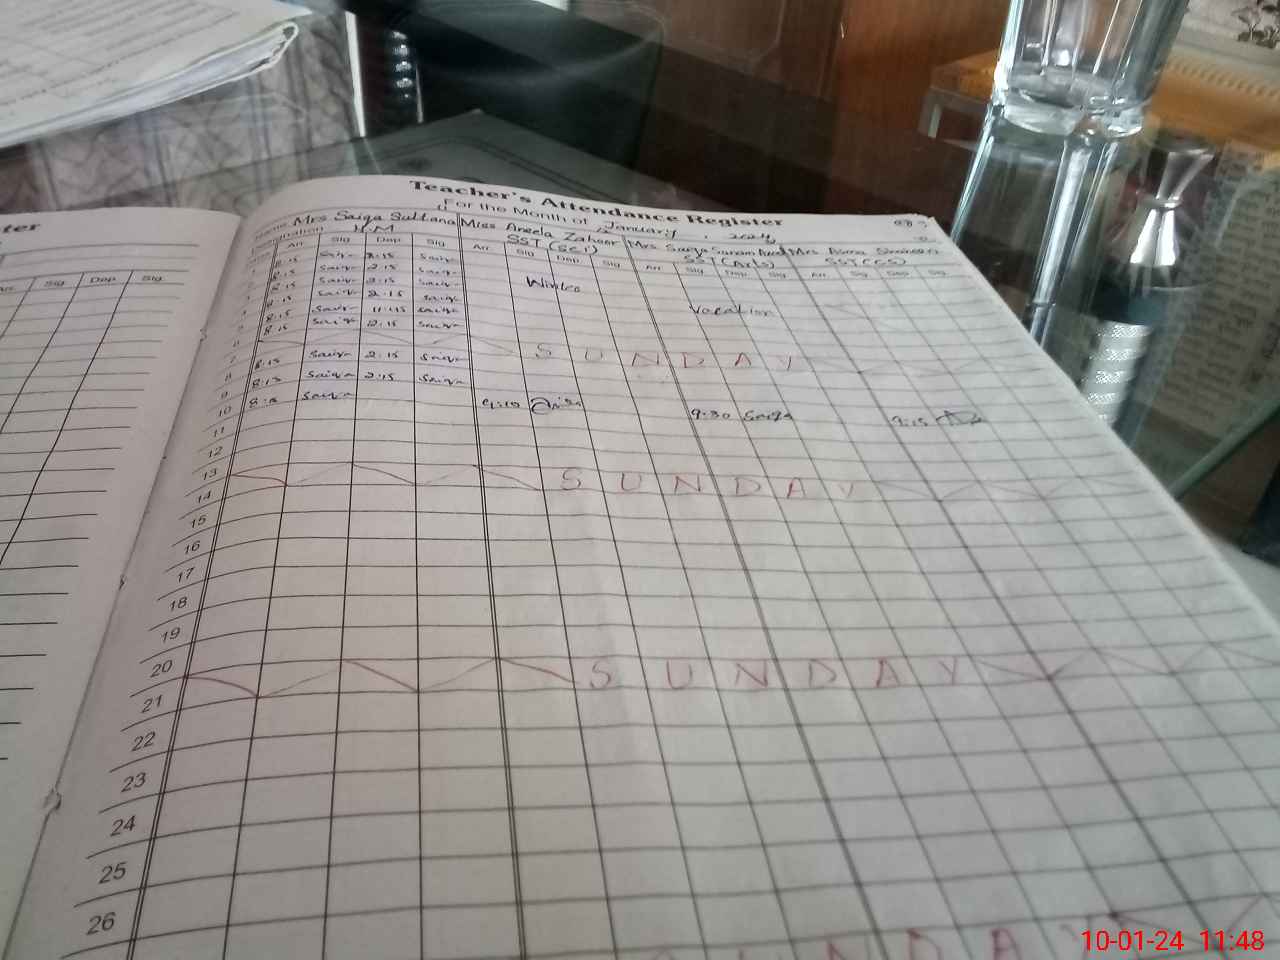 Teacher's Attendance Register
For the Month of January, 2024
Name Mrs Saiqa Sultana Miss Aneela Zahoor Mrs Saiqa
Designation H.M SST (Sci) SST (Arts) SST (CS)
Arr. Sig Dep. Sig Arr. Sig Dep. Sig Arr. Sig Dep. Sig Arr. Sig Dep. Sig
ter
Arr. Sig Dep. Sig.
8:15 Saiqa 2:15 Saiqa
8:15 Saiqa 2:15 Saiqa Winter
8:15 Saiqa 2:15 Saiqa Vacation
8:15 Saiqa 11:45 Saiqa
8:15 Saiqa 2:15 Saiqa
6
7 SUNDAY
8 8:15 Saiqa 2:15 Saiqa
9 8:15 Saiqa 2:15 Saiqa
10 8:15 Saiqa 9:10 9:30 Saiqa 9:15
11
12
13
14 SUNDAY
15
16
17
18
19
20
21 SUNDAY
22
23
24
25
26
UNDAY
10-01-24 11:48